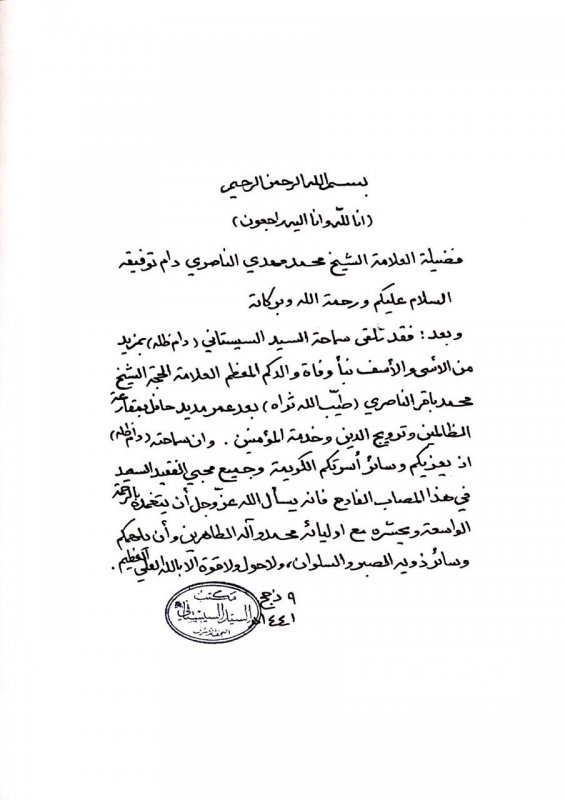 بسم الله الرحمن الرحيم
(انا لله وانا اليه راجعون)
فضيلة العلامة الشيخ محمد مهدي الناصري دام توفيقه
السلام عليكم ورحمة الله وبركاته
وبعد : فقد تلقى سماحة السيد السيستاني (دام ظله) بمزيد
من الأسى والأسف نبأ وفاة والدكم المعظم العلامة الحجة الشيخ
محمد باقر الناصري (طيّب الله ثراه) بعد عمر مديد حافل بمقارعة
الظالمين وترويج الدين وخدمة المؤمنين . وان سماحته (دام ظله)
اذ يعزيكم وسائر أسرتكم الكريمة وجميع محبي الفقيد السعيد
في هذا المصاب الفادح فانه يسأل الله عزّ وجل أن يتغمده بالرحمة
الواسعة ويحشره مع اوليائه محمد وآله الطاهرين وأن يلهمكم
وسائر ذويه الصبر والسلوان، ولا حول ولا قوة الا بالله العلي العظيم .
٩ ذ حج
١٤٤١هـ
مكتب
السيد السيستاني
النجف الأشرف